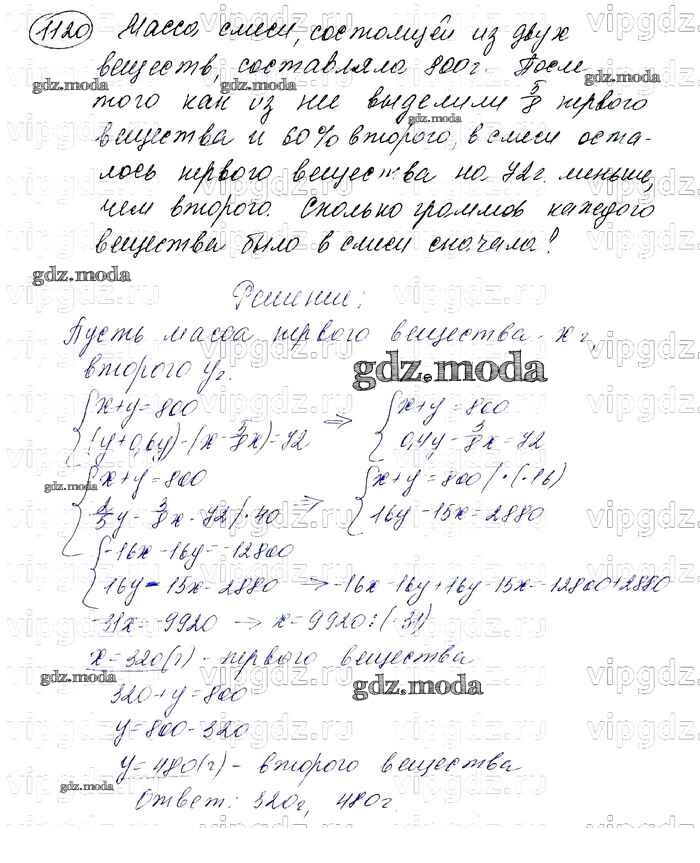 1120 Масса смеси, состоящей из двух
веществ, составляла 800г. После
того как из нее выделили 5/8 первого
вещества и 60% второго, в смеси оста-
лось первого вещества на 72г. меньше,
чем второго. Сколько граммов каждого
вещества было в смеси сначала?
Решение:
Пусть масса первого вещества - x г,
второго y г.
gdz.moda
{x+y=800 => {x+y=800
(y+0,6y)-(x-5/8x)=72 0,4y-3/8x=72
{x+y=800 {x+y=800/·(-16)
2/5y-3/8x=72/·40 => 16y-15x=2880
{-16x-16y=-12800
16y-15x=2880 => -16x-16y+16y-15x=-12800+2880
-31x=-9920 -> x=9920:(-31)
x=320(г) - первого вещества
320+y=800
gdz.moda
y=800-320
y=480(г) - второго вещества
Ответ: 320г, 480г.